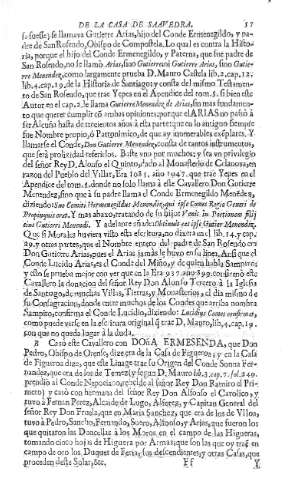 DE LA CASA DE SAAVEDRA. 57
se fuesse, se llamava Gutierre Arias, hijo del Conde Ermenegildo, y pa-
dre de San Rosendo, Obispo de Compostela. Lo qual es contra la Histo-
ria, porque el hijo del Conde Ermenegildo, y Paterna, que fue padre de
San Rosendo, no se llamò Arias, sino Gutierre
Menendez, como largamente prueba D. Mauro Castela lib. 2. cap. 12.
lib. 4. cap. 19. de la Historia de Santiago y consta del mismo Testamen-
to de San Rosendo, que trae Yepes en el Apendice del tom. 5. si bien este
Autor en el cap. 2. le llama Gutierre Menendez de Arias, sin mas fundamen-
to que querer cumplir con ambas opiniones; porque el ARIAS no passò à
ser Alcuña hasta de trecientos años à esta parte; que en lo antiguo siempre
fue Nombre propio, ò Patronimico, de que ay innumerables exemplares. Y
llamarse el Conde, Don Gutierre Menendez, consta de tantos instrumentos,
que serà prolixidad referirlos. Baste uno por muchos; y sea un privilegio
del señor Rey D. Alonso el Quinto, dado al Monasterio de Celanova, en
razon del Pueblo del Villar, Era 1085. año 1047. que trae Yepes en el
Apendice del tom. 1. donde no solo llama à este Cavallero Don Gutierre
Menendez, sino que à su padre llama el Conde Ermenegildo Menendez,
diziendo:
Propinquus erat. Y mas abaxo, tratando de su hijo:
Gutierri Menendi. Y adelante
Que si Morales huviera visto esta escritura, no dixera en el lib. 14. cap.
29. y otras partes, que el Nombre entero del padre de San Rosendo era
Don Gutierre Arias; pues el Arias jamàs le huvo en su linea. Assi que el
Conde Lucidio Arias, es el Conde del Miño, y de quien habla Sampiro;
y esto se prueba mejor con ver que en la Era 937. año 899. confirmò este
Cavallero la donacion del señor Rey Don Alonso Tercero à la Iglesia
de Santiago de muchas Villas, Tierras, y Monasterios, el dia mismo de
su Consagracion; donde entre muchos de los Condes que à ella nombra
Sampiro, confirma el Conde Lucidio, diziendo: Lucidus Comes confirmat,
como puede verse en la escritura original que trae D. Mauro, lib. 4. cap. 19.
con que no queda lugar à la duda.
8 Casò este Cavallero con DOÑA ERMESENDA, que Don
Pedro, Obispo de Orense, dize era de la Casa de Figueroa; y en la Casa
de Figueroa dize, que este Linage trae su Origen del Conde Sonna Fer-
nandez, que era de los de Temez (y segun D. Mauro lib. 3. cap. 7. fol. 249.
prendiò al Conde Nepociano, rebelde al señor Rey Don Ramiro el Pri-
mero) y casò con hermana del señor Rey Don Alfonso el Catolico, y
tuvo à Fernan Perez, Alcayde de Lugo, Alferez, y Capitan General del
señor Rey Don Fruela, que en Maria Sanchez, que era de los de Ulloa,
tuvo à Pedro, Sancho, Fernando, Suero, Alfonso, y Arias, que fueron los
que quitaron las Doncellas à los Moros en el campo de las Higueras,
tomando cinco hojas de Higuera por Armas; que son las que oy traè en
campo de oro los Duques de Feria, sus descendientes, y otras Casas, que
proceden deste Solar, &c. Ff Y